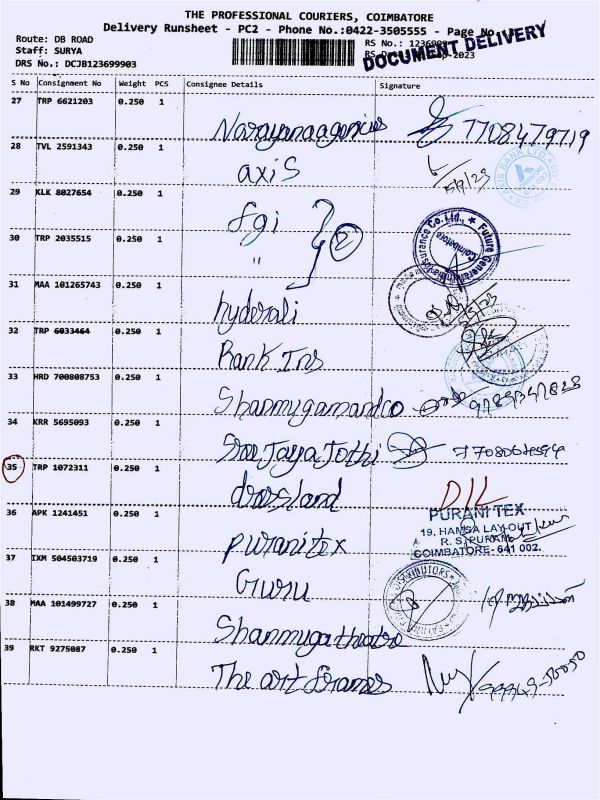 THE PROFESSIONAL COURIERS, COIMBATORE
Delivery Runsheet - PC2 - Phone No.:0422-3505555 - Page No.
Route: DB ROAD
Staff: SURYA
DRS No.: DCJB123699903
RS No.: 1236
2023
DOCUMENT DELIVERY
S No Consignment No Weight PCS Consignee Details Signature
27 TRP 6621203 0.250 1
Narayana agencies 7708479719
28 TVL 2591343 0.250 1
axis 5/9/23
AXIS BANK LTD
29 KLK 8027654 0.250 1
fgi
30 TRP 2035515 0.250 1
" 2
Future Generali Insurance Co. Ltd., Coimbatore
31 MAA 101265743 0.250 1
hyderali
32 TRP 6033464 0.250 1
Rank Ins
33 HRD 700808753 0.250 1
Shanmugamandco
34 KRR 5695093 0.250 1
Sree Jaya Jothi
35 TRP 1072311 0.250 1
dressland D/L
36 APK 1241451 0.250 1
puranitex
PURANI TEX
19, HAMSA LAY-OUT
R. S. PURAM
COIMBATORE- 641 002.
37 IXM 504503719 0.250 1
Guru
DISTRIBUTORS
38 MAA 101499727 0.250 1
Shanmuga theatre
39 RKT 9275087 0.250 1
The art frames 99949-50050